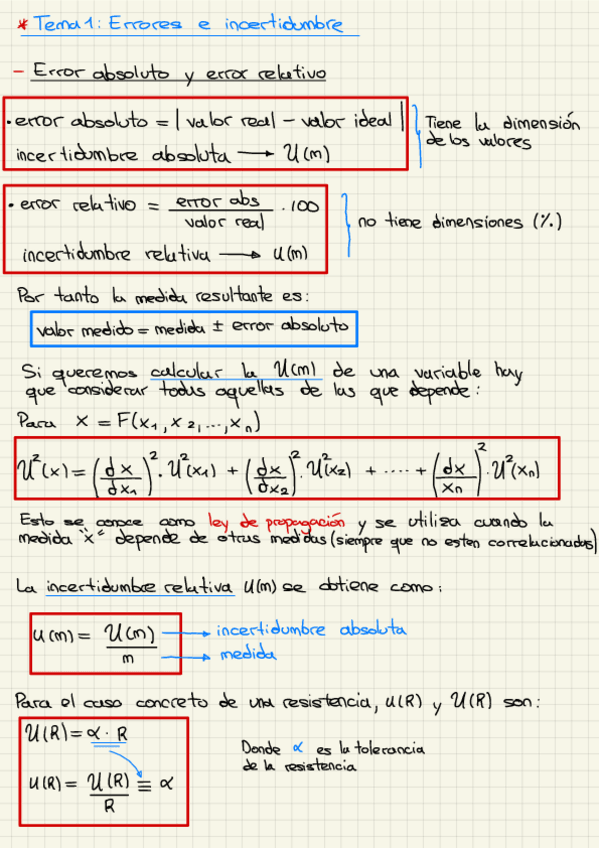 * Tema 1: Errores e incertidumbre
- Error absoluto y error relativo
• error absoluto = | valor real - valor ideal |
incertidumbre absoluta → U(m)
Tiene la dimensión
de los valores
• error relativo = error abs / valor real · 100
incertidumbre relativa → u(m)
no tiene dimensiones (%)
Por tanto la medida resultante es:
valor medido = medida ± error absoluto
Si queremos calcular la U(m) de una variable hay
que considerar todas aquellas de las que depende:
Para X = F(x1, x2, ..., xn)
U²(x) = (dx/dx1)² · U²(x1) + (dx/dx2)² · U²(x2) + .... + (dx/xn)² · U²(xn)
Esto se conoce como ley de propagación y se utiliza cuando la
medida "x" depende de otras medidas (siempre que no esten correlacionadas)
La incertidumbre relativa u(m) se obtiene como:
u(m) = U(m) / m
→ incertidumbre absoluta
→ medida
Para el caso concreto de una resistencia, u(R) y U(R) son:
U(R) = α · R
u(R) = U(R) / R ≡ α
Donde α es la tolerancia
de la resistencia